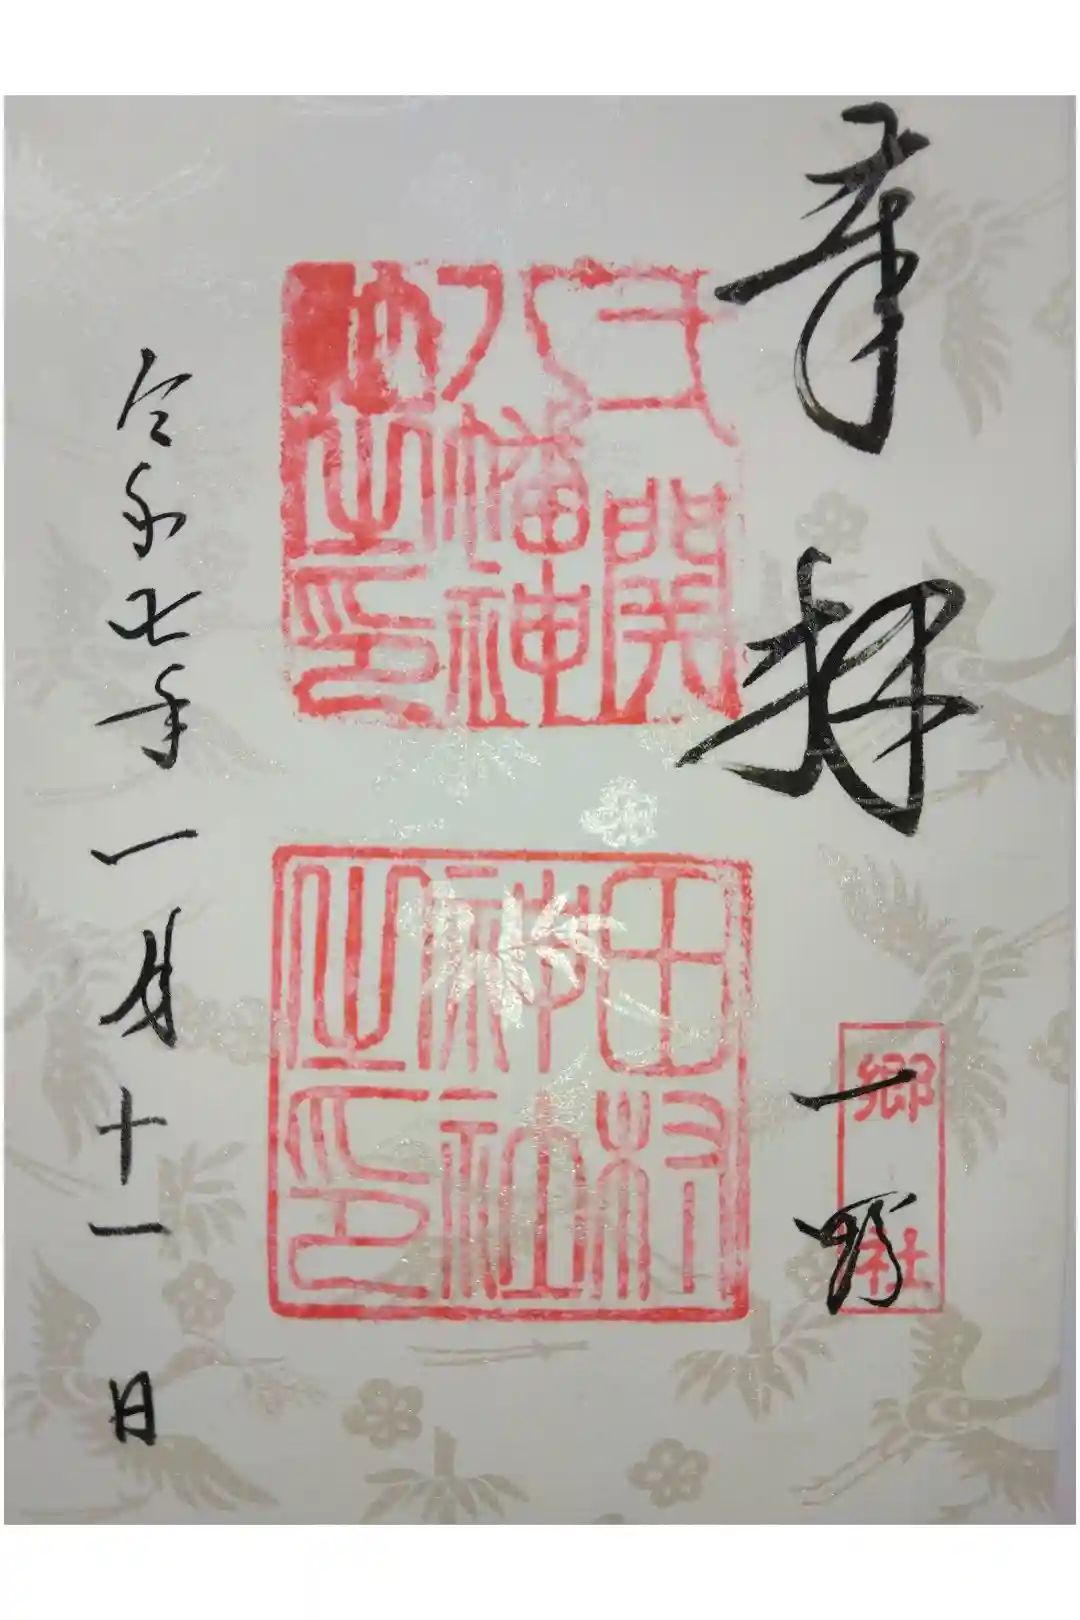 奉拝
一野
郷社
関
八幡神
社之印
田村
神社
之印
令和七年一月十一日